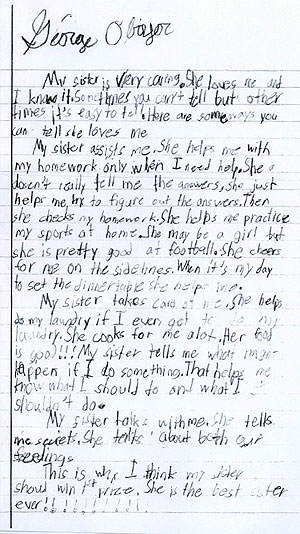 George
My sister is very caring. She loves me and
I know it. Sometimes you can't tell but other
times it's easy to tell. Here are some ways you
can tell she loves me
My sister assists me. She helps me with
my homework only when I need help. She
doesn't really tell me the answers, she just
helps me try to figure out the answers. Then
she checks my homework. She helps me practice
my sports at home. She may be a girl but
she is pretty good at football. She cheers
for me on the sidelines. When it's my day
to set the dinnertable she helps me.
My sister takes care of me. She helps
do my laundry if I even get to my
laundry. She cooks for me alot. Her food
is good!!! My sister tells me what might
happen if I do something. That helps me
know what I should do and what I
shouldn't do.
My sister talks with me. She tells
me secrets. She talks about both our
feelings
This is why I think my sister
should win 1st prize. She is the best sister
ever!!!!!!!!!